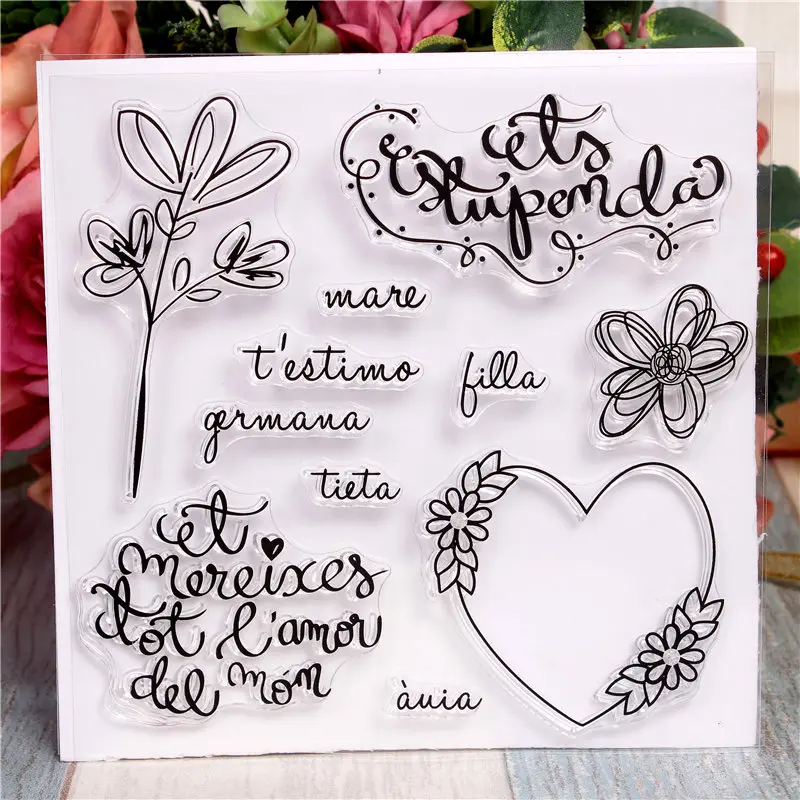 ets
estupenda
mare
t'estimo
filla
germana
tieta
et
mereixes
tot l'amor
del món
àvia